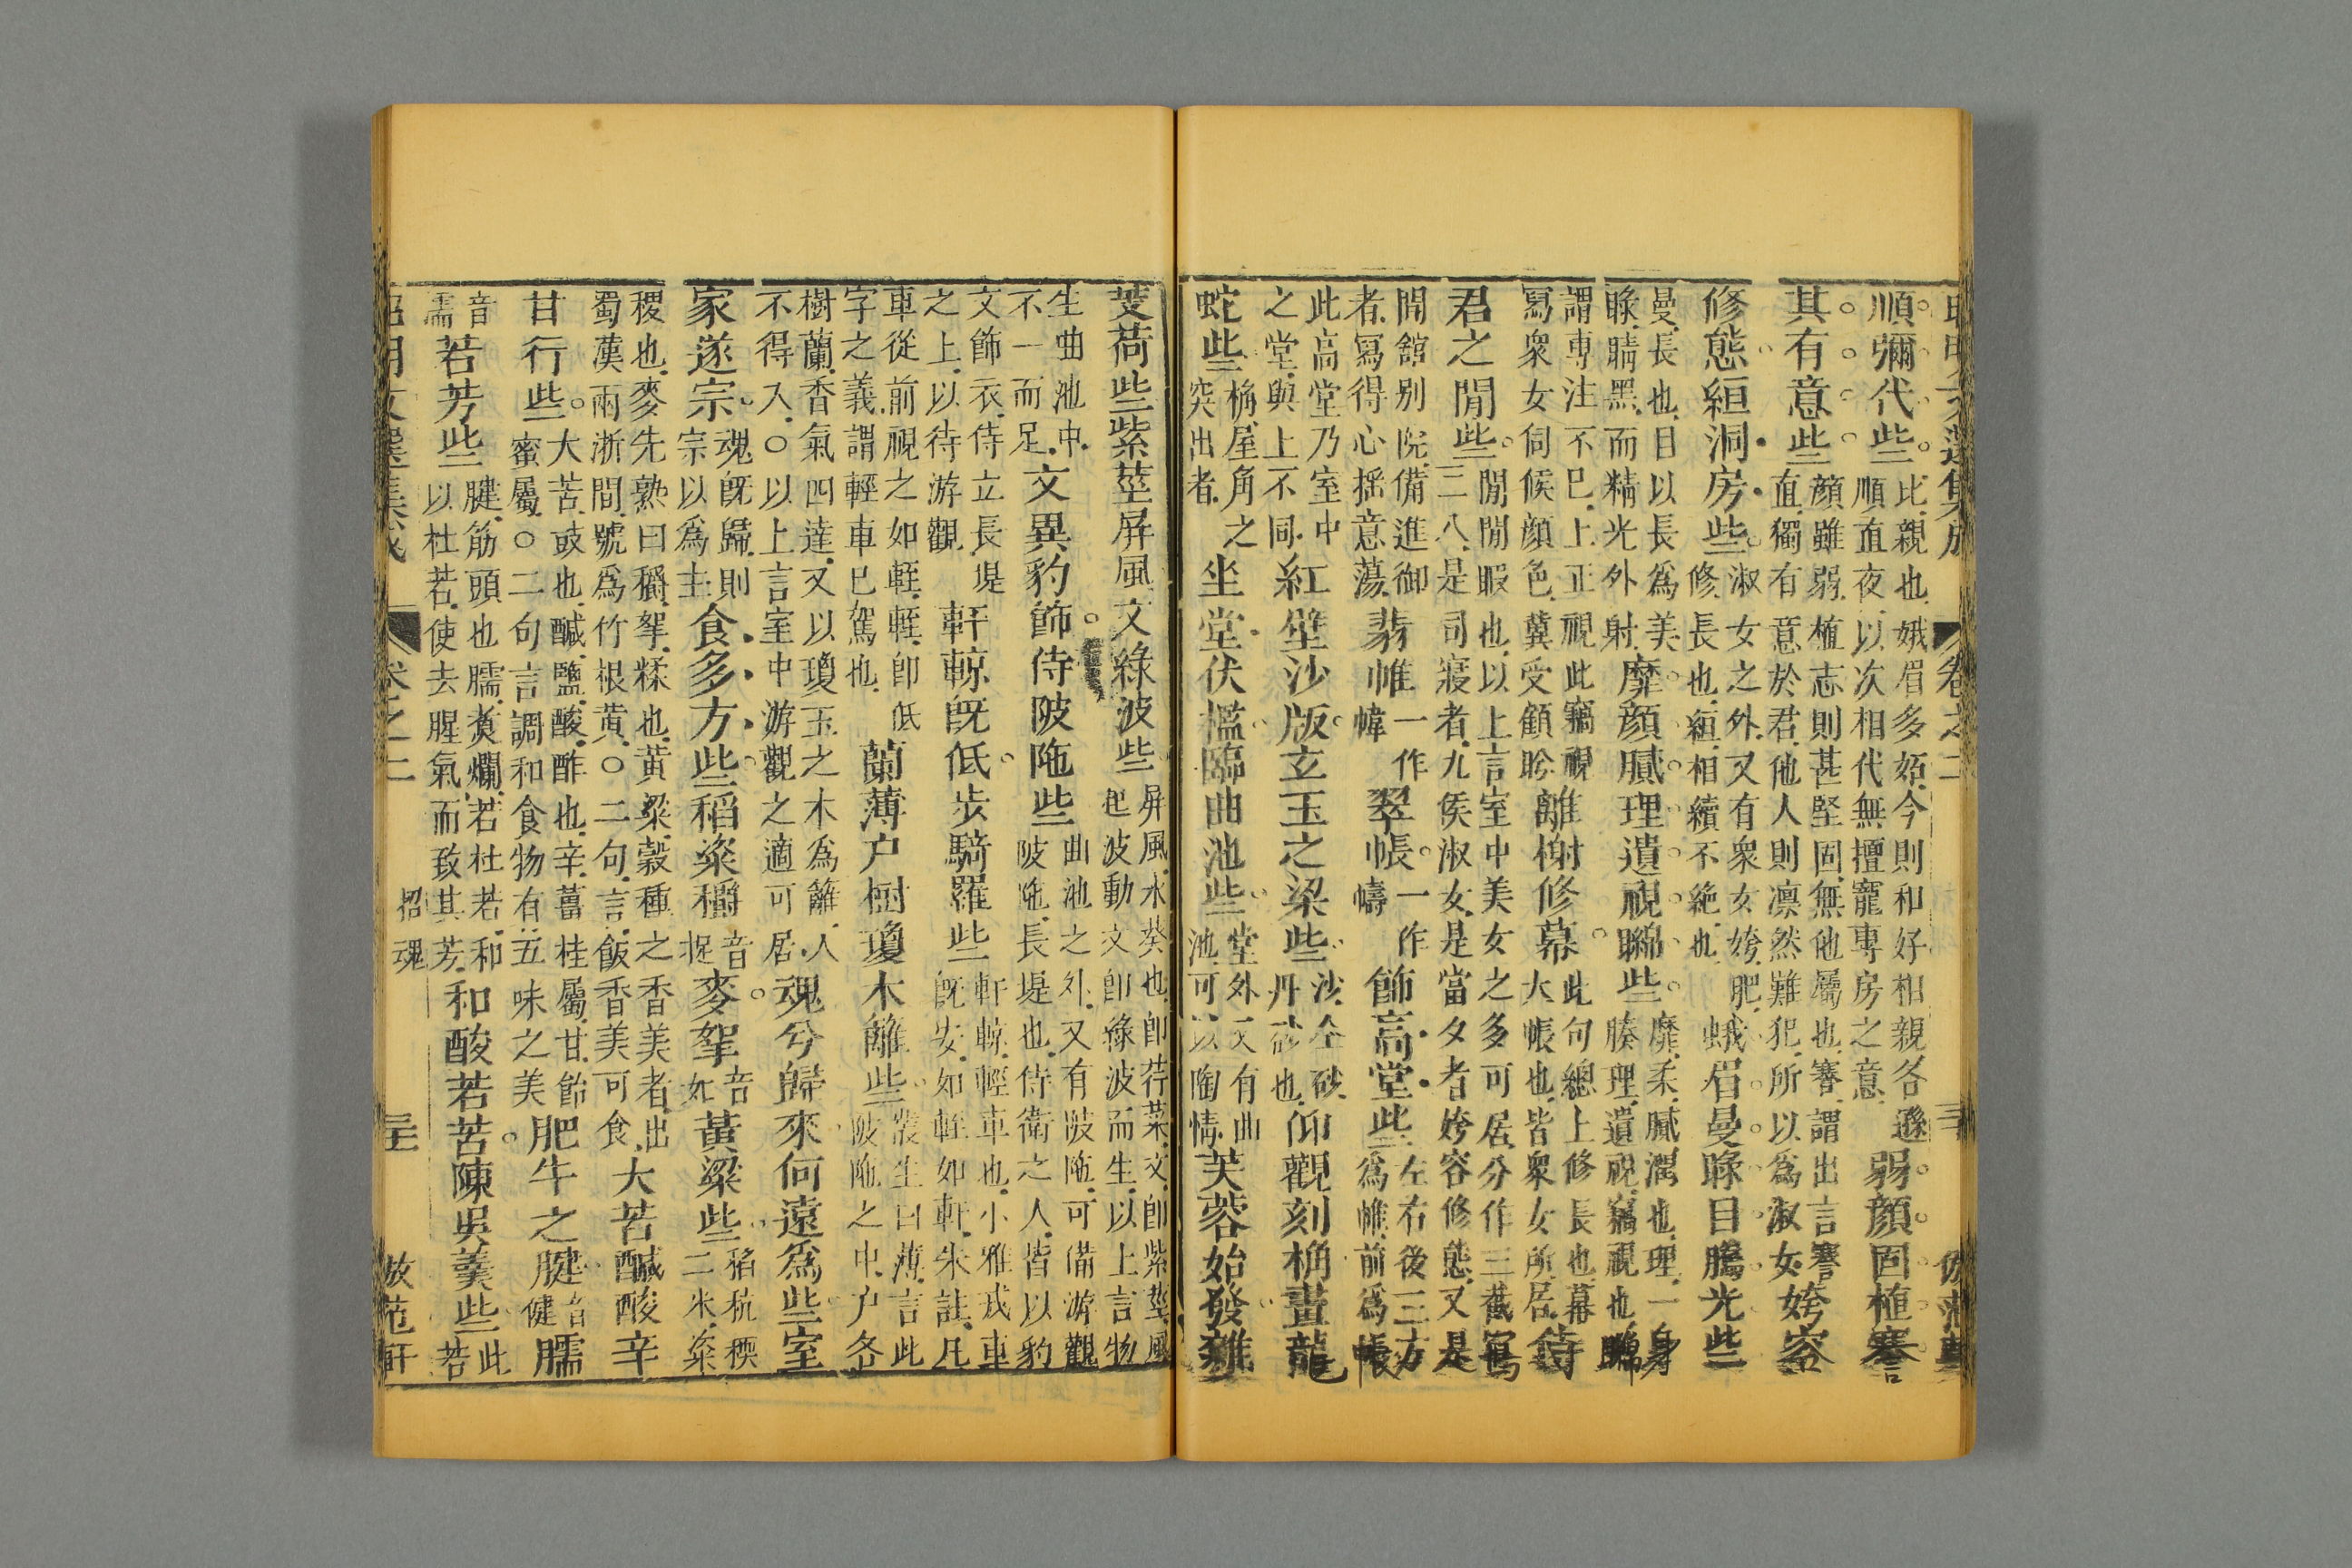 昭明文選集成 卷之二
順彌代些。比親也娥眉多姱今則和好相親各遜順直夜以次相代無擅寵專房之意弱顏固植謇
其有意些顏雖弱植志則甚堅固無他屬也謇謂出言謇直獨有意於君他人則凛然難犯所以爲淑女姱容
修態絙洞房些淑女之外又有衆女姱肥修長也絙相續不絕也蛾眉曼睩目騰光些
曼長也目以長爲美睩睛黑而精光外射靡顏膩理遺視矊些靡柔膩潤也理一身腠理遺視竊視也矊
謂專注不巳上正視此竊視寫衆女伺候顏色冀受顧盼離榭修幕此句總上修長也幕大帳也皆衆女所居侍
君之閒些閒閒暇也以上言室中美女之多可居分作三截寫二八是司寢者九侯淑女是當夕者姱容修態又是
閒舘别院備進御者寫得心揺意蕩翡帷一作幃翠帳一作幬飾高堂些左右後三方爲帷前爲帳
此高堂乃室中之堂與上不同紅壁沙版玄玉之梁些沙仝砂丹砂也仰觀刻桷畫龍
蛇些桷屋角之突出者坐堂伏檻臨曲池些堂外又有曲池可以陶情芙蓉始發雜
芰荷些紫莖屏風文緑波些屏風水葵也卽荇菜文卽紫莖風起波動文卽緑波而生以上言物
生曲池中不一而足文異豹飾侍陂陁些曲池之外又有陂陁可備游觀陂陁長堤也侍衛之人皆以豹
文飾衣侍立長堤之上以待游觀軒輬旣低步騎羅些軒輬輕車也小雅戎車旣安如輊如軒朱註凡
車從前視之如輊輊卽低字之義謂輕車巳駕也蘭薄户樹瓊木籬些叢生曰薄言此陂陁之中户各
樹蘭香氣四達又以瓊玉之木爲籬人不得入〇以上言室中游觀之適可居魂兮歸來何遠爲些室
家遂宗魂旣歸則宗以爲主食多方些稻粢穱音捉麥挐音如黃粱些稻秔稬二米粢
稷也麥先熟曰穱挐糅也黄粱穀種之香美者出蜀漢兩浙間號爲竹根黄〇二句言飯香美可食大苦醎酸辛
甘行些。大苦豉也醎鹽酸酢也辛薑桂屬甘飴蜜屬〇二句言調和食物有五味之美肥牛之腱音健臑
音濡若芳些腱筋頭也臑煑爛若杜若和以杜若使去腥氣而致其芳和酸若苦陳吳羹些此若
昭明文選集成 卷之二 招魂 倣范軒